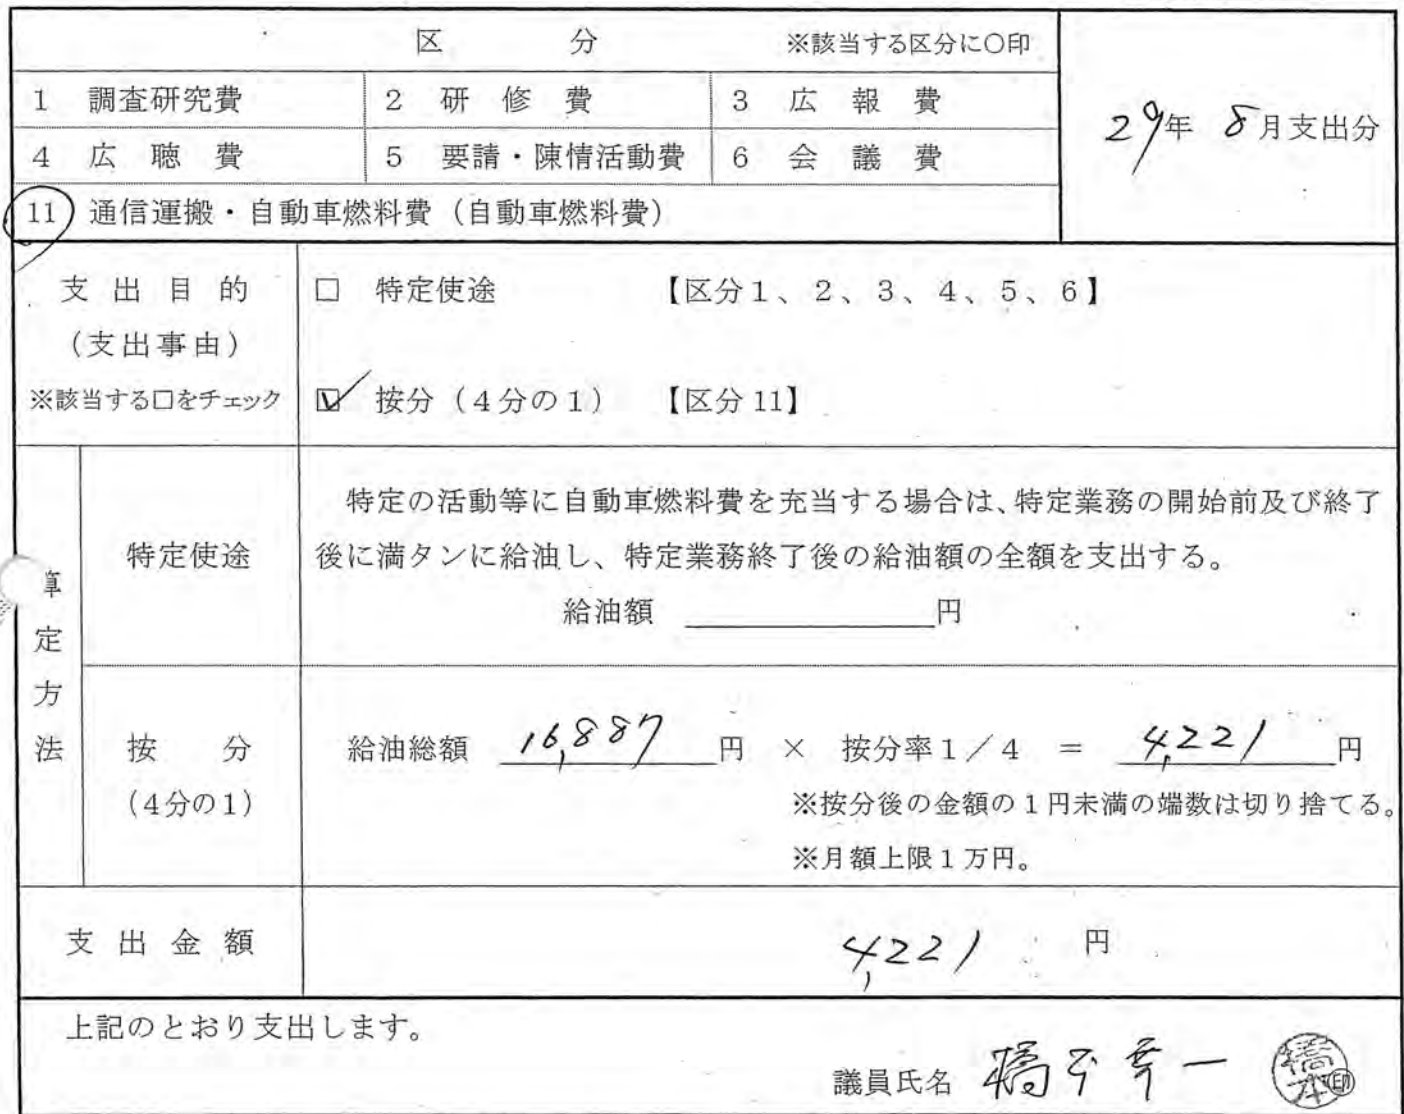 区 分 ※該当する区分に○印
1 調査研究費 2 研修費 3 広報費
29年 8月支出分
4 広聴費 5 要請・陳情活動費 6 会議費
11 通信運搬・自動車燃料費(自動車燃料費)
支出目的 □ 特定使途 【区分1、2、3、4、5、6】
(支出事由)
※該当する□をチェック ☑ 按分(4分の1) 【区分11】
算定方法
特定使途
特定の活動等に自動車燃料費を充当する場合は、特定業務の開始前及び終了
後に満タンに給油し、特定業務終了後の給油額の全額を支出する。
給油額 円
按分
(4分の1)
給油総額 16,887 円 × 按分率1/4 = 4,221 円
※按分後の金額の1円未満の端数は切り捨てる。
※月額上限1万円。
支出金額 4,221 円
上記のとおり支出します。
議員氏名 橋本幸一 橋本 印